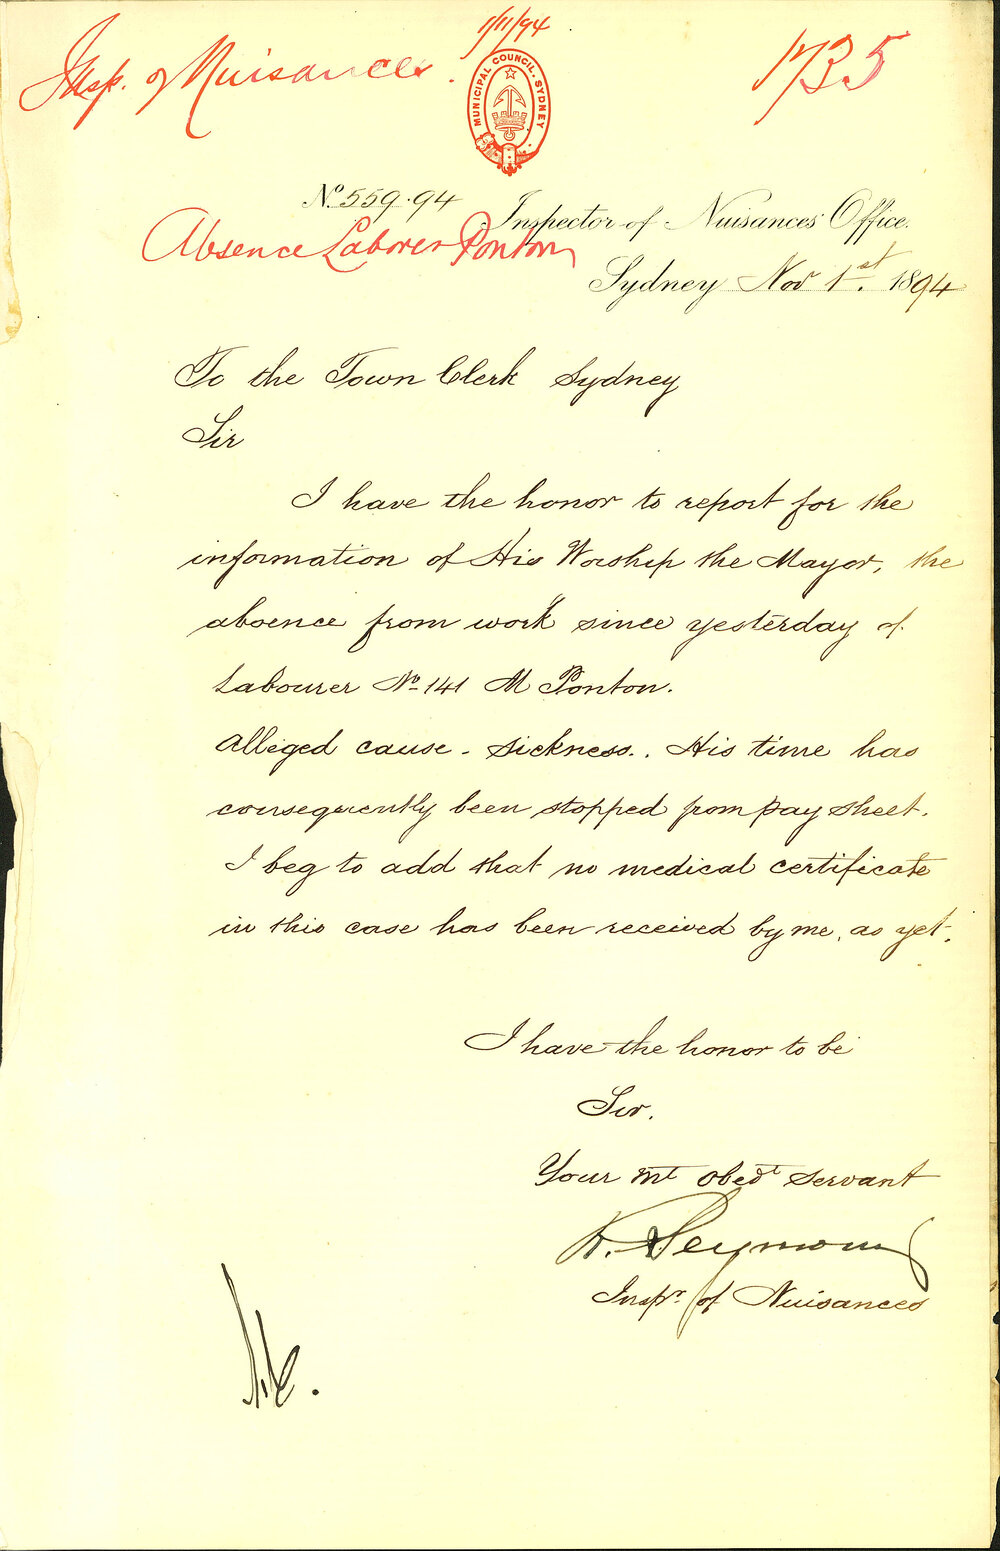 1/11/94
Insp. of Nuisances.
1735
MUNICIPAL COUNCIL. SYDNEY
No. 559.94
Inspector of Nuisances' Office.
Absence Laborer Ponton
Sydney Nov 1st. 1894
To the Town Clerk Sydney
Sir
I have the honor to report for the
information of His Worship the Mayor, the
absence from work since yesterday of
Labourer No 141 M Ponton.
Alleged cause - Sickness. His time has
consequently been stopped from pay sheet.
I beg to add that no medical certificate
in this case has been received by me, as yet.
I have the honor to be
Sir.
Your mt obedt servant
R. Seymour
Inspr. of Nuisances